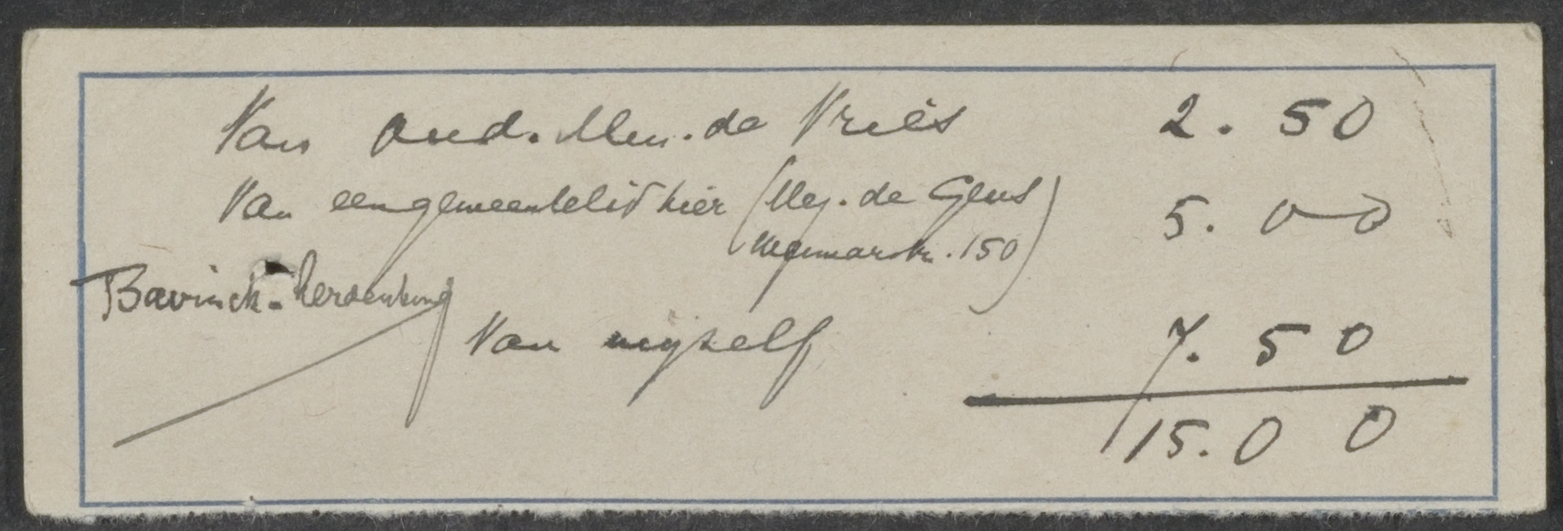 Van oud. Min. de Vries 2.50
Van een gemeentelid hier (Mej. de Geus 5.00
150)
Bavinck-herdenking
Van myself 7.50
15.00